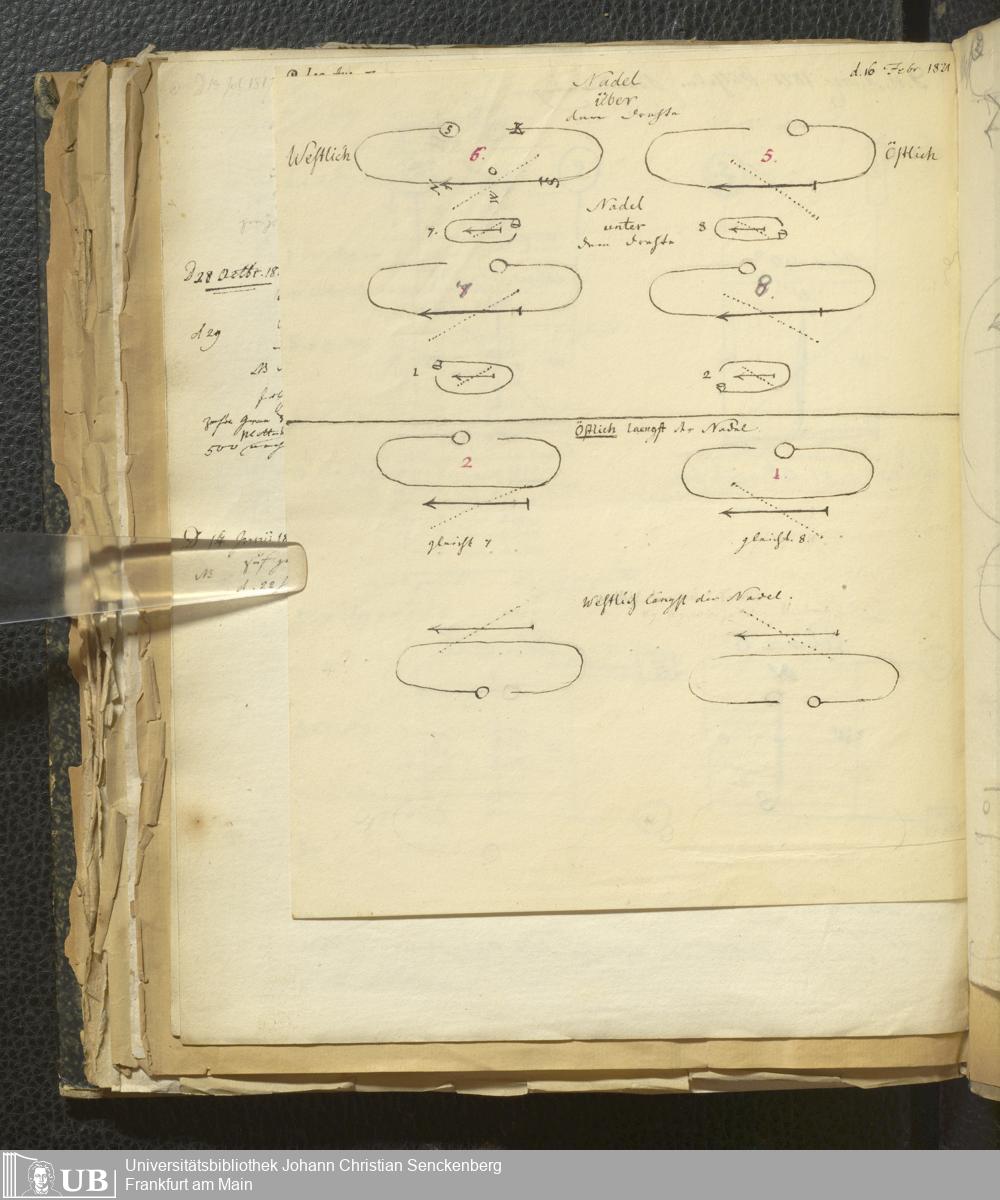 d. 16 Febr 1821
Nadel
über
dem Drahte
Westlich
S
N
6.
5.
Östlich
N
S
O
W
Nadel
unter
dem Drahte
7.
8
7
8.
D 28 Octbr. 18
d 29
NB
1
2
500
Östlich laengst der Nadel.
2
1.
gleicht 7
gleicht. 8.
NB
Westlich längst der Nadel.
UB
Universitätsbibliothek Johann Christian Senckenberg
Frankfurt am Main